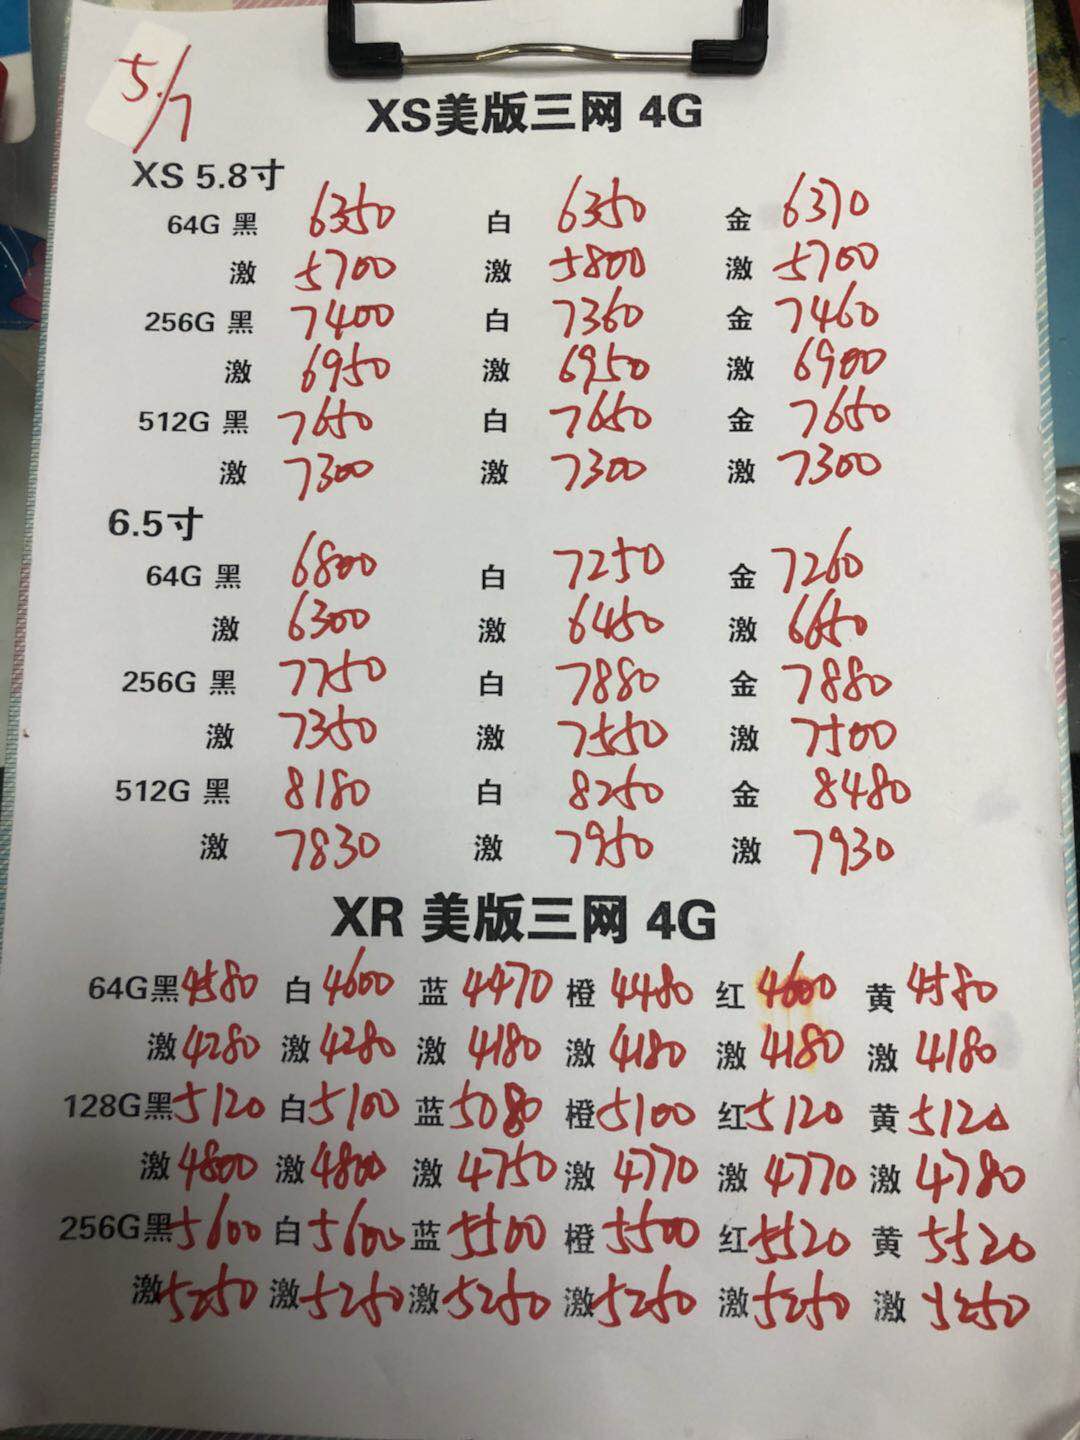 5/7
XS美版三网 4G
XS 5.8寸
64G 黑 6350 白 6350 金 6370
激 5700 激 5800 激 5700
256G 黑 7400 白 7360 金 7460
激 6950 激 6950 激 6900
512G 黑 7650 白 7650 金 7650
激 7300 激 7300 激 7300
6.5寸
64G 黑 6800 白 7250 金 7260
激 6300 激 6450 激 6650
256G 黑 7750 白 7880 金 7880
激 7350 激 7550 激 7500
512G 黑 8180 白 8250 金 8480
激 7830 激 7950 激 7930
XR 美版三网 4G
64G黑 4580 白 4600 蓝 4470 橙 4480 红 4600 黄 4580
激 4280 激 4280 激 4180 激 4180 激 4180 激 4180
128G黑 5120 白 5100 蓝 5080 橙 5100 红 5120 黄 5120
激 4800 激 4800 激 4750 激 4770 激 4770 激 4780
256G黑 5600 白 5600 蓝 5500 橙 5500 红 5520 黄 5520
激 5250 激 5250 激 5250 激 5250 激 5250 激 5250